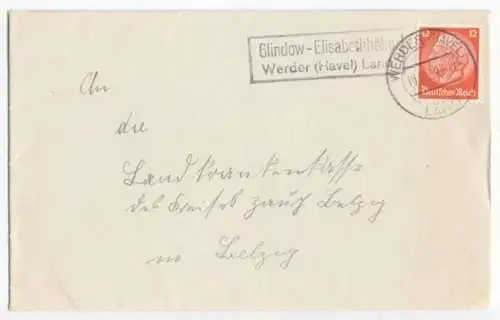 Glindow-Elisabethhöhe
Werder (Havel) Land
WERDER (HAVEL)
LAND
12
Deutsches Reich
An
die
Landkrankenkasse
des Kreises Zauch Belzig
in Belzig